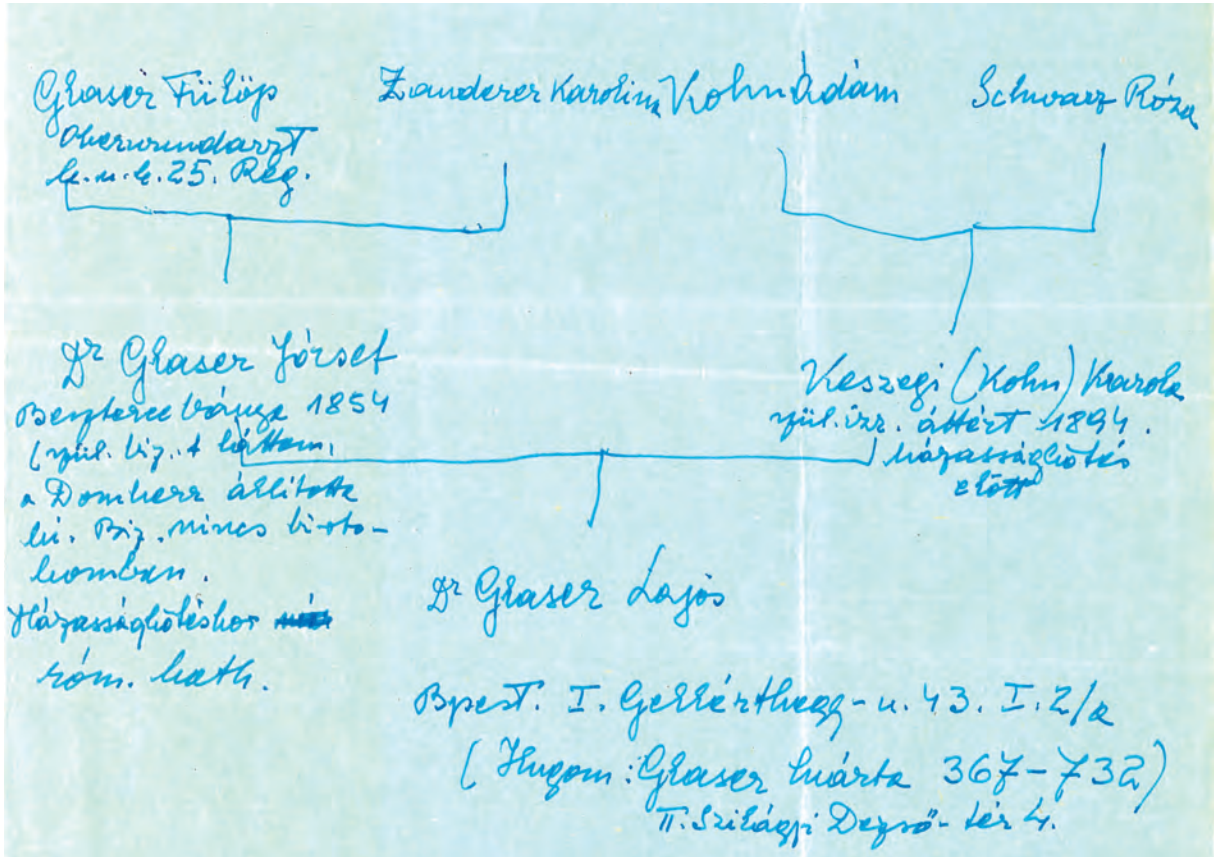 Glaser Fülöp
Oberwundarzt
k.u.k. 25. Reg.
Zanderer Karolina
Kohn Ádám
Schwarz Róza
Dr Glaser József
Besztercebánya 1854
(szül. biz. t láttam,
a Domherr állította
ki. Biz. nincs birto-
komban.
Házasságkötéskor
róm. kath.
Keszegi (Kohn) Karola
szül. izr. áttért 1894.
házasságkötés
előtt
Dr Glaser Lajos
Bpest. I. Gellérthegy-u. 43. I. 2/a
(Hugom: Glaser Márta 367-732)
II. Szilágyi Dezső-tér 4.